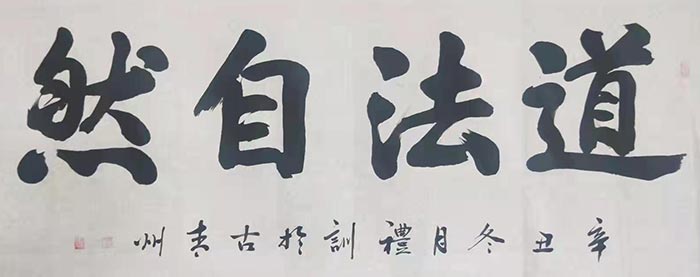 道法自然
辛丑冬月禮訓於古青州